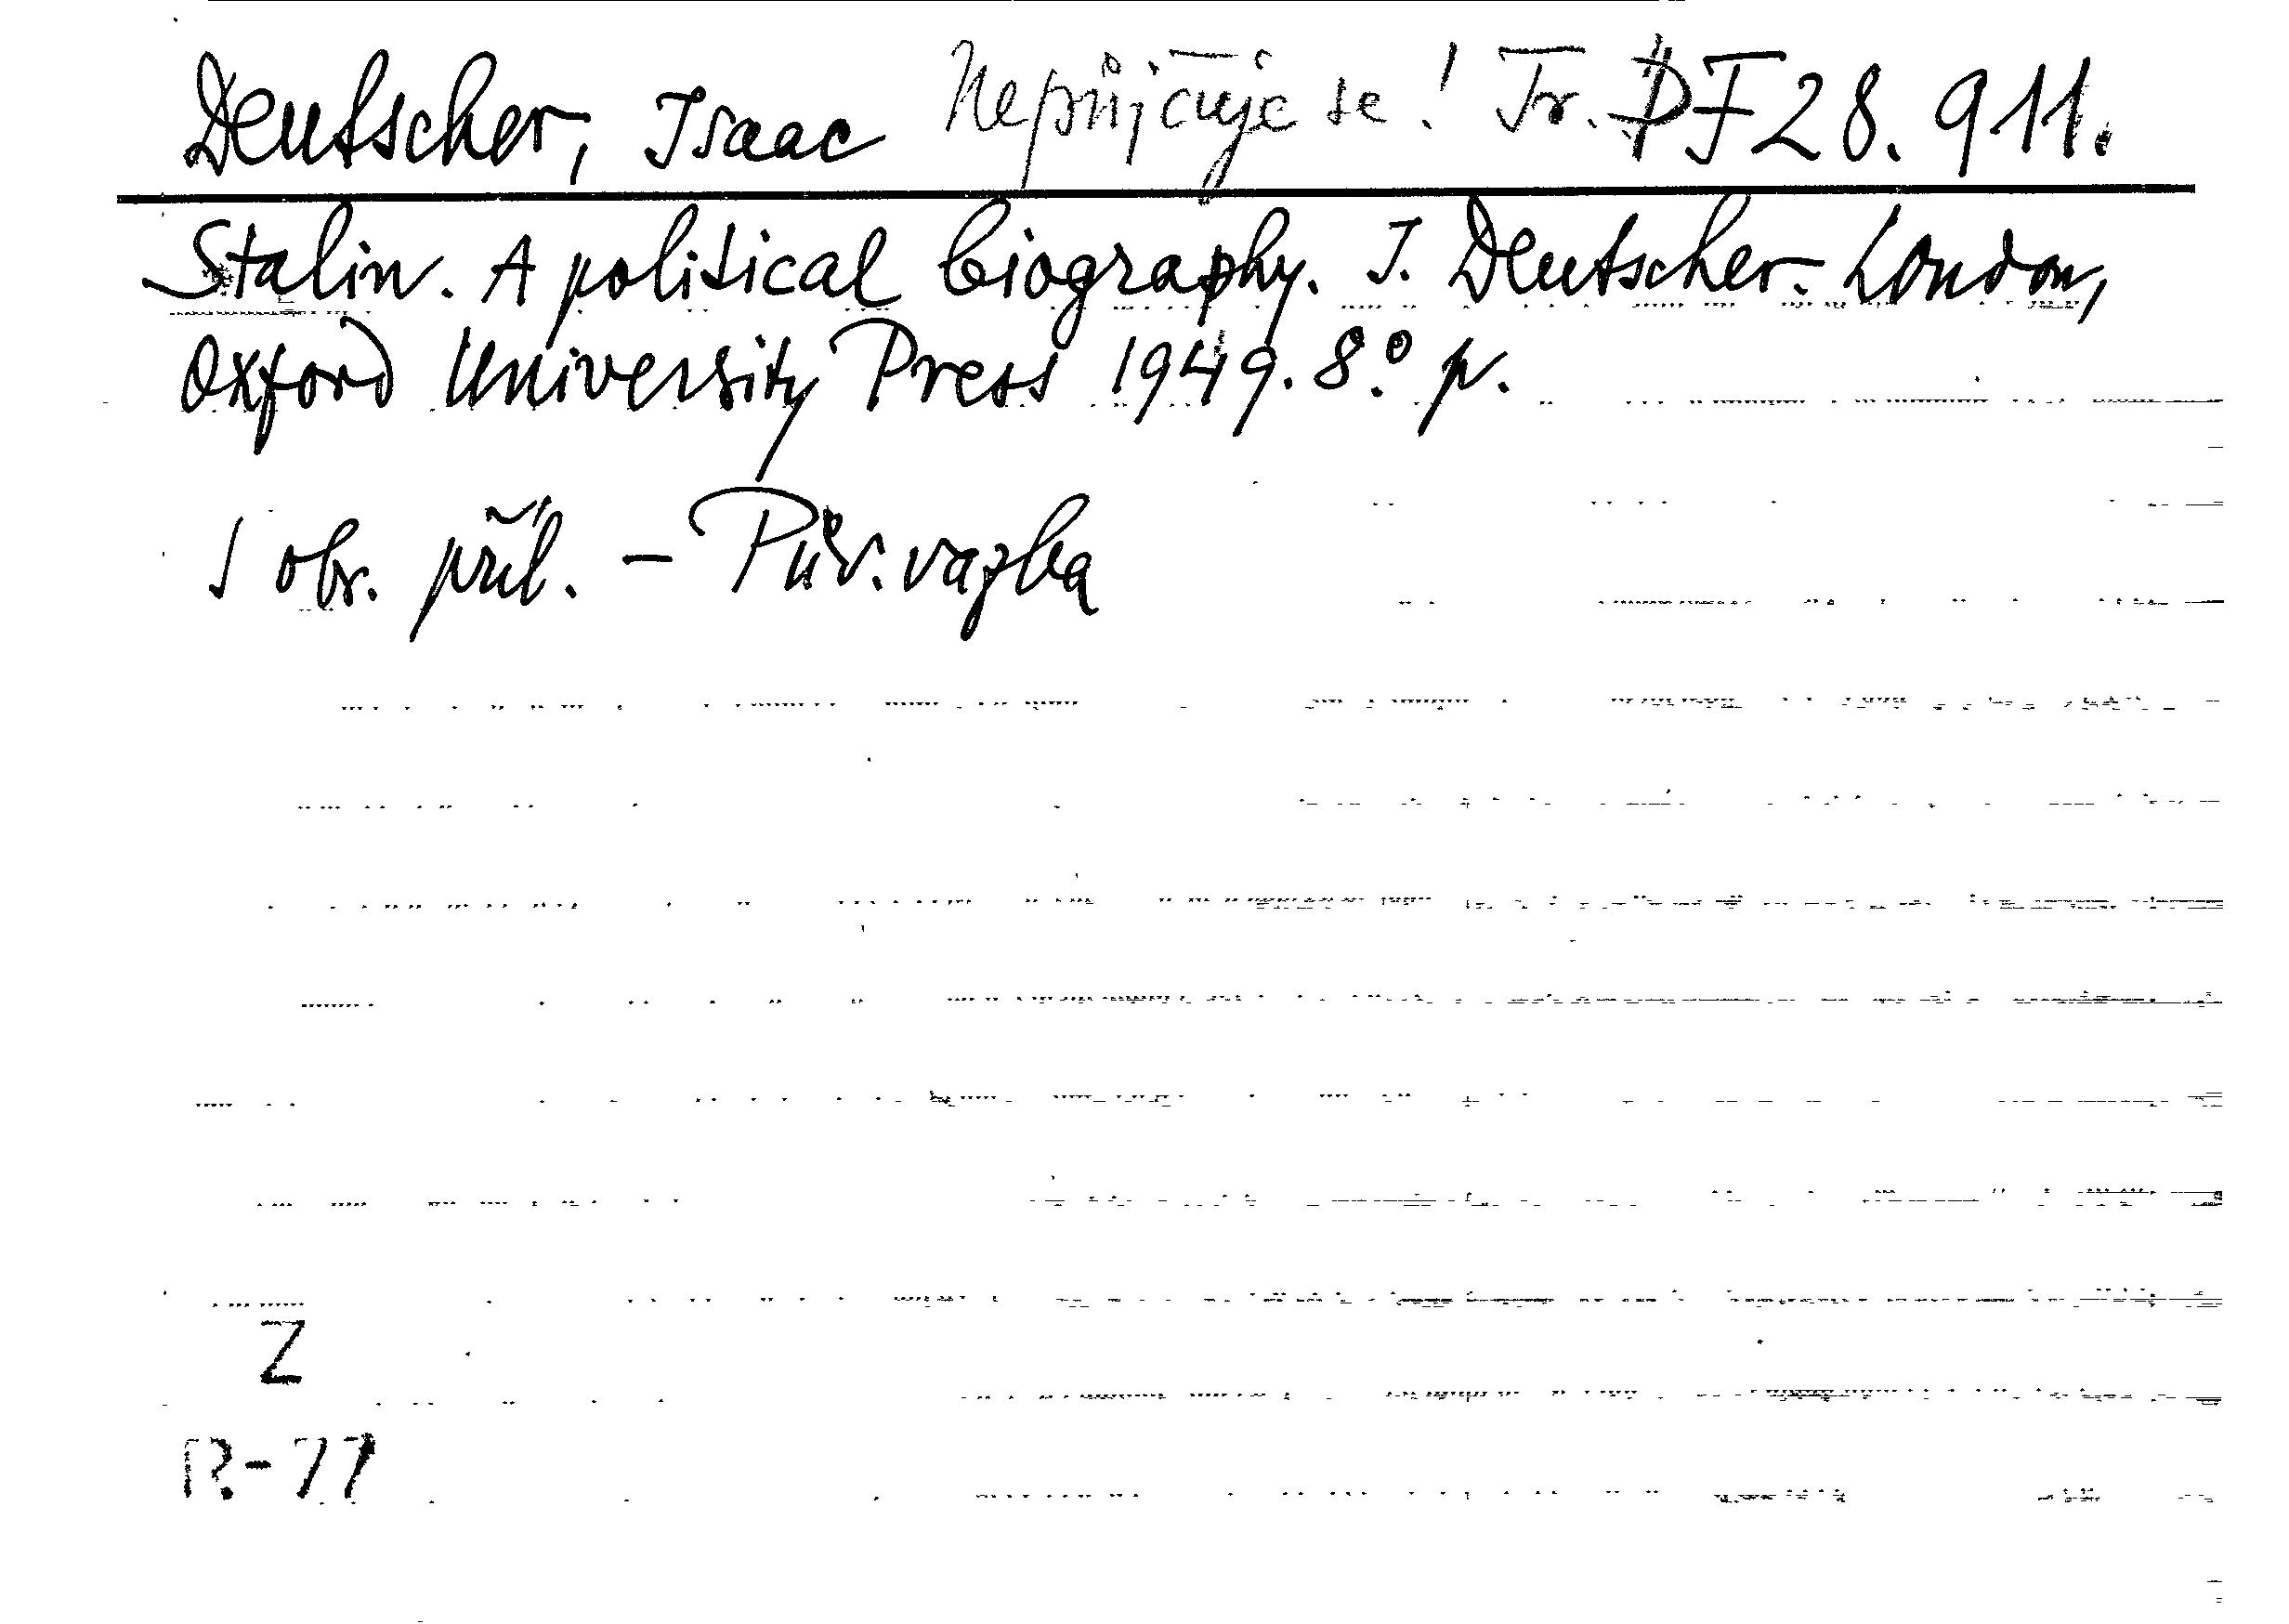 Deutscher, Isaac Nepůjčuje se! Tr. DF 28.911.
Stalin. A political biography. I. Deutscher. London,
Oxford University Press 1949. 8.° p.
S obr. příl. - Pův. vazba
Z
R-77